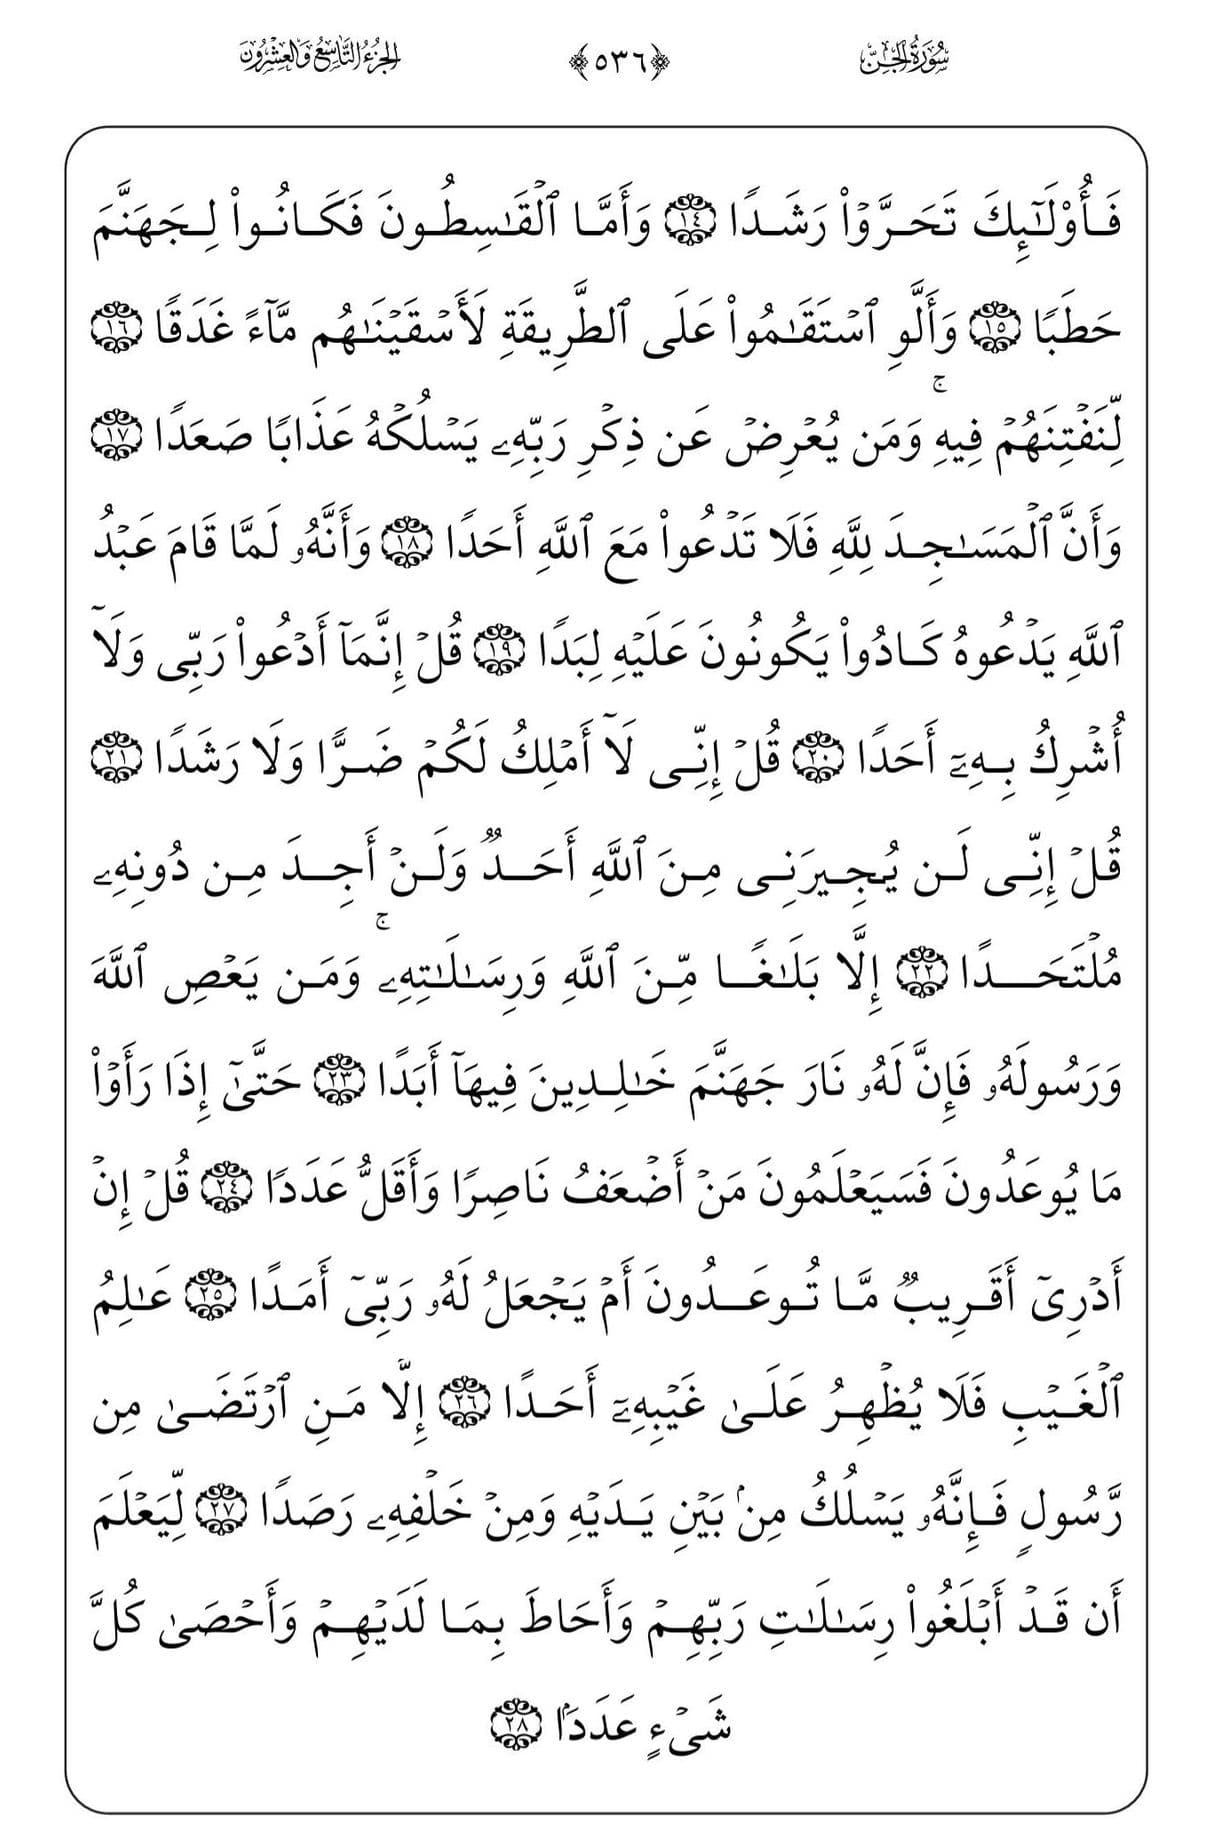 سُورَةُ الجِنِّ ﴿٥٣٦﴾ الجُزْءُ التَّاسِعُ وَالعِشْرُونَ
فَأُوْلَٰٓئِكَ تَحَرَّوۡاْ رَشَدٗا ١٤ وَأَمَّا ٱلۡقَٰسِطُونَ فَكَانُواْ لِجَهَنَّمَ
حَطَبٗا ١٥ وَأَلَّوِ ٱسۡتَقَٰمُواْ عَلَى ٱلطَّرِيقَةِ لَأَسۡقَيۡنَٰهُم مَّآءً غَدَقٗا ١٦
لِّنَفۡتِنَهُمۡ فِيهِۚ وَمَن يُعۡرِضۡ عَن ذِكۡرِ رَبِّهِۦ يَسۡلُكۡهُ عَذَابٗا صَعَدٗا ١٧
وَأَنَّ ٱلۡمَسَٰجِدَ لِلَّهِ فَلَا تَدۡعُواْ مَعَ ٱللَّهِ أَحَدٗا ١٨ وَأَنَّهُۥ لَمَّا قَامَ عَبۡدُ
ٱللَّهِ يَدۡعُوهُ كَادُواْ يَكُونُونَ عَلَيۡهِ لِبَدٗا ١٩ قُلۡ إِنَّمَآ أَدۡعُواْ رَبِّي وَلَآ
أُشۡرِكُ بِهِۦٓ أَحَدٗا ٢٠ قُلۡ إِنِّي لَآ أَمۡلِكُ لَكُمۡ ضَرّٗا وَلَا رَشَدٗا ٢١
قُلۡ إِنِّي لَن يُجِيرَنِي مِنَ ٱللَّهِ أَحَدٞ وَلَنۡ أَجِدَ مِن دُونِهِۦ
مُلۡتَحَدًا ٢٢ إِلَّا بَلَٰغٗا مِّنَ ٱللَّهِ وَرِسَٰلَٰتِهِۦۚ وَمَن يَعۡصِ ٱللَّهَ
وَرَسُولَهُۥ فَإِنَّ لَهُۥ نَارَ جَهَنَّمَ خَٰلِدِينَ فِيهَآ أَبَدًا ٢٣ حَتَّىٰٓ إِذَا رَأَوۡاْ
مَا يُوعَدُونَ فَسَيَعۡلَمُونَ مَنۡ أَضۡعَفُ نَاصِرٗا وَأَقَلُّ عَدَدٗا ٢٤ قُلۡ إِنۡ
أَدۡرِيٓ أَقَرِيبٞ مَّا تُوعَدُونَ أَمۡ يَجۡعَلُ لَهُۥ رَبِّيٓ أَمَدًا ٢٥ عَٰلِمُ
ٱلۡغَيۡبِ فَلَا يُظۡهِرُ عَلَىٰ غَيۡبِهِۦٓ أَحَدًا ٢٦ إِلَّا مَنِ ٱرۡتَضَىٰ مِن
رَّسُولٖ فَإِنَّهُۥ يَسۡلُكُ مِنۢ بَيۡنِ يَدَيۡهِ وَمِنۡ خَلۡفِهِۦ رَصَدٗا ٢٧ لِّيَعۡلَمَ
أَن قَدۡ أَبۡلَغُواْ رِسَٰلَٰتِ رَبِّهِمۡ وَأَحَاطَ بِمَا لَدَيۡهِمۡ وَأَحۡصَىٰ كُلَّ
شَيۡءٍ عَدَدَۢا ٢٨